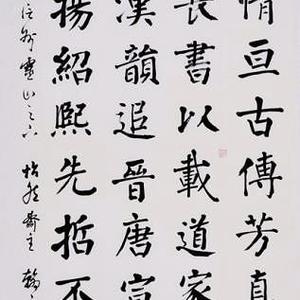 情亘古傳芳真
書以載道家
漢韻追晉唐
揚紹熙先哲不
靈山之 齋主 翰